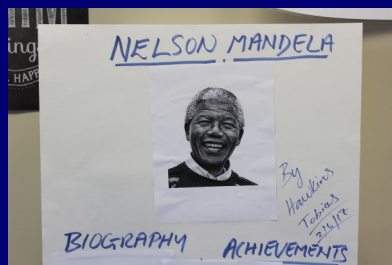 NELSON MANDELA
By
Hawkins
Tobias
BIOGRAPHY
ACHIEVEMENTS